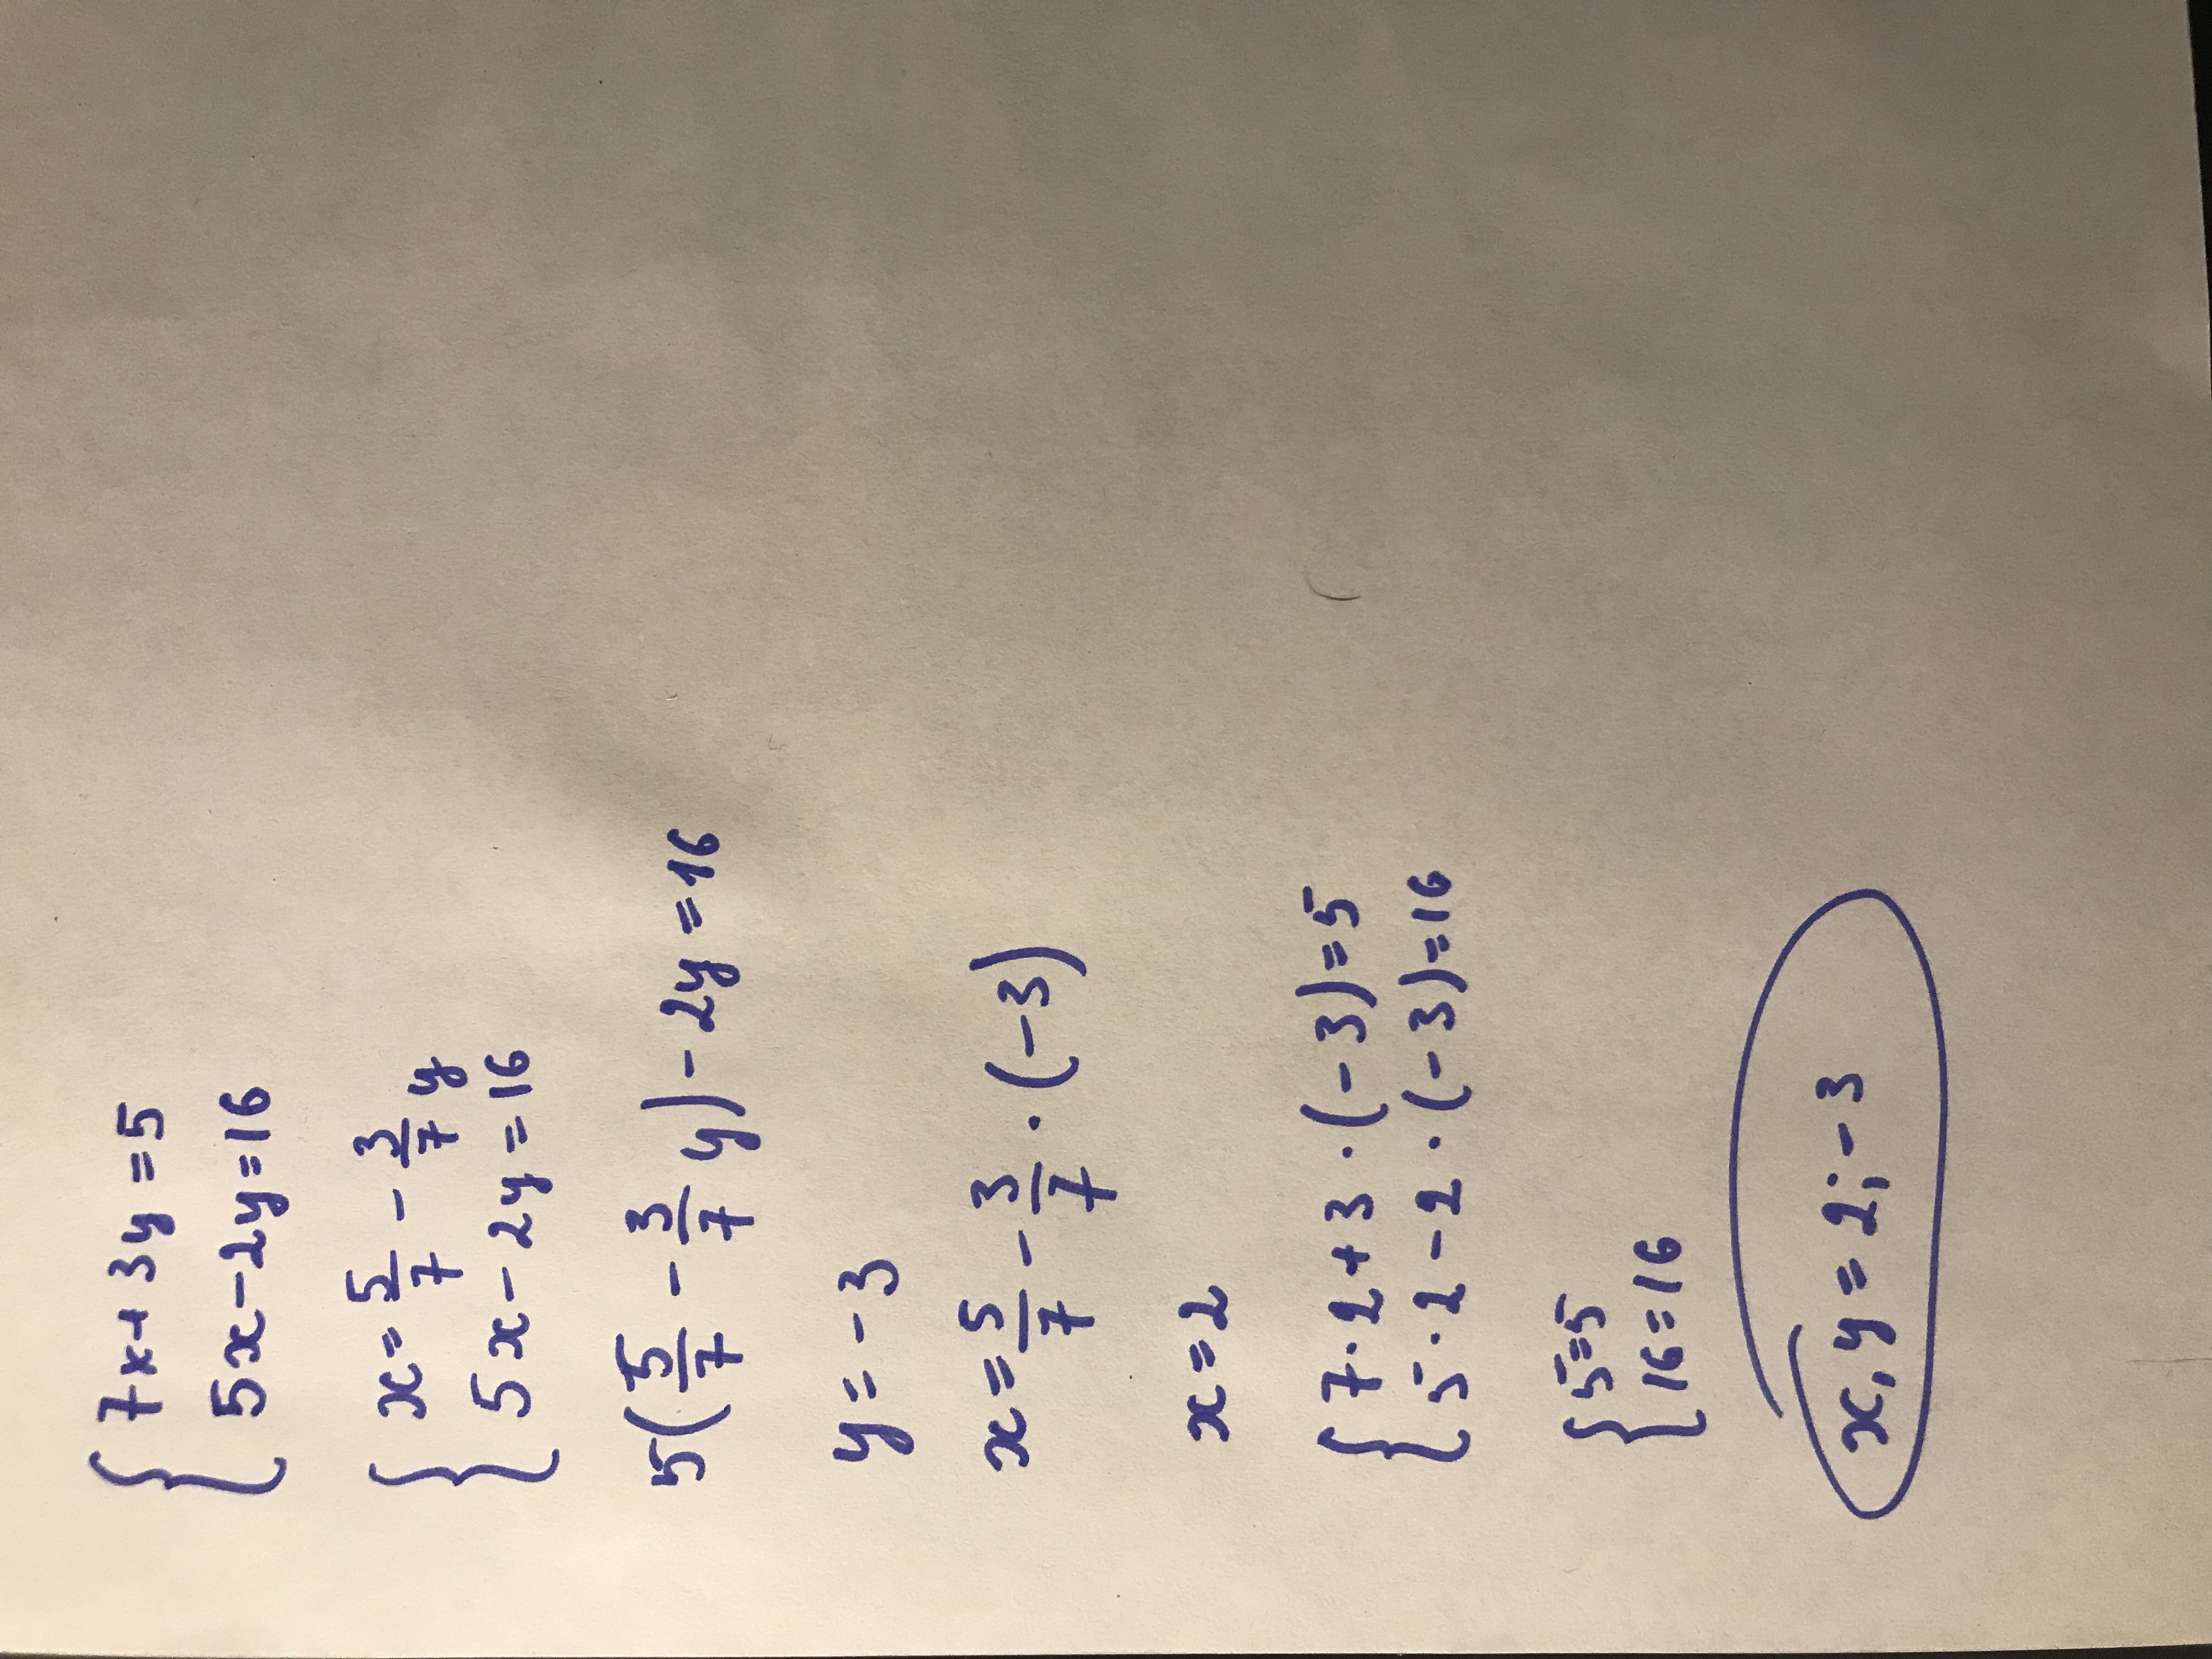 { 7x+3y=5
5x-2y=16
{ x=5/7-3/7y
5x-2y=16
5(5/7-3/7y)-2y=16
y=-3
x=5/7-3/7·(-3)
x=2
{ 7·2+3·(-3)=5
5·2-2·(-3)=16
{ 5=5
16=16
x,y=2;-3